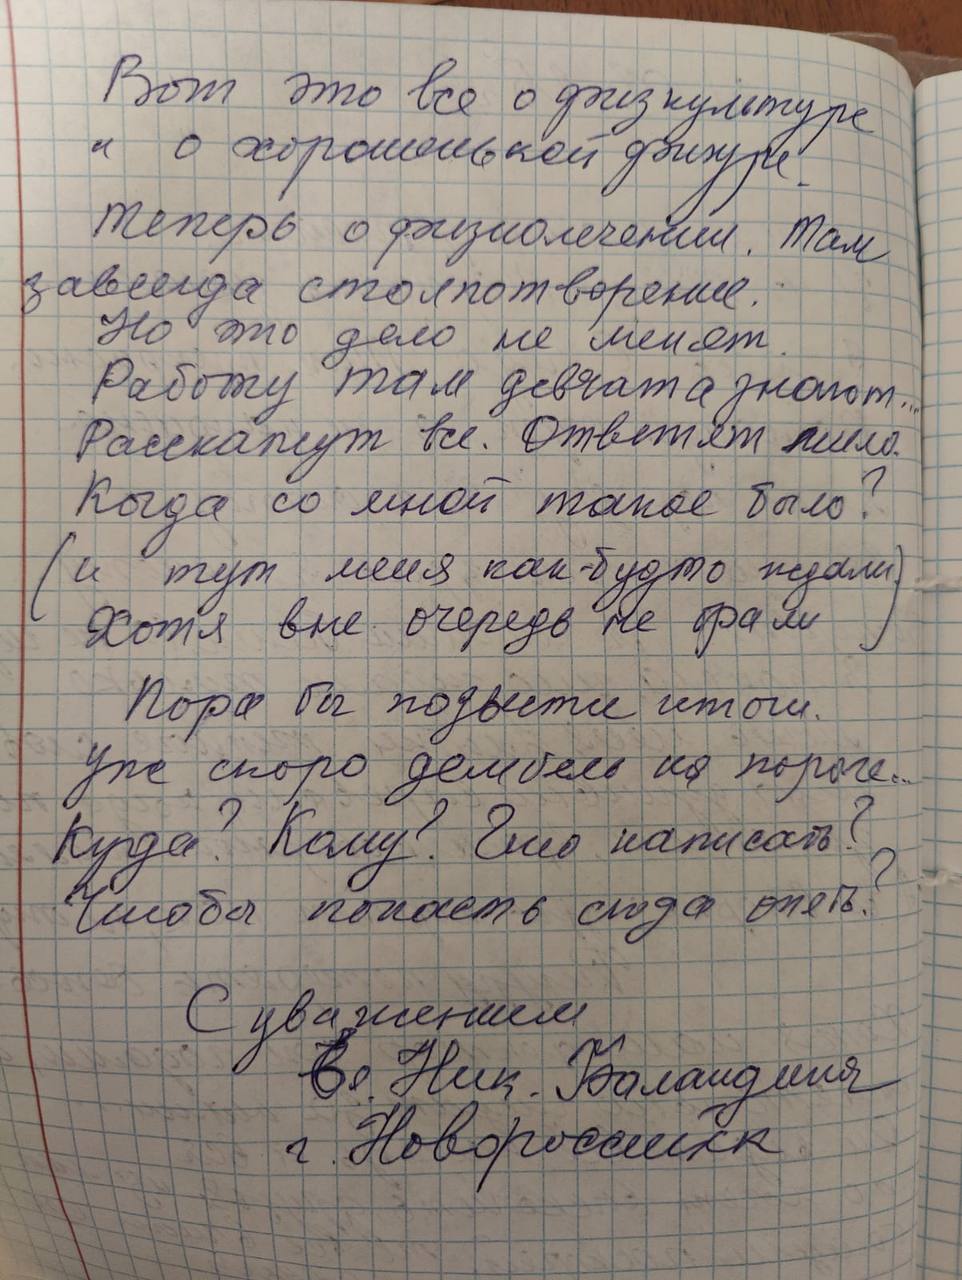 Вот это все о физкультуре
и о хорошенькой фигуре.
Теперь о физиолечении. Там
завсегда столпотворение.
Но это дело не меняет.
Работу там девчата знают...
Расскажут все. Ответят мило.
Когда со мной такое было?
(и тут меня как-будто ждали)
Хотя вне очередь не брали
Пора бы подвести итоги.
Уже скоро дембель на пороге...
Куда? Кому? Что написать?
Чтобы попасть сюда опять?
С уважением
Ев. Ник. Баландина
г. Новороссийск